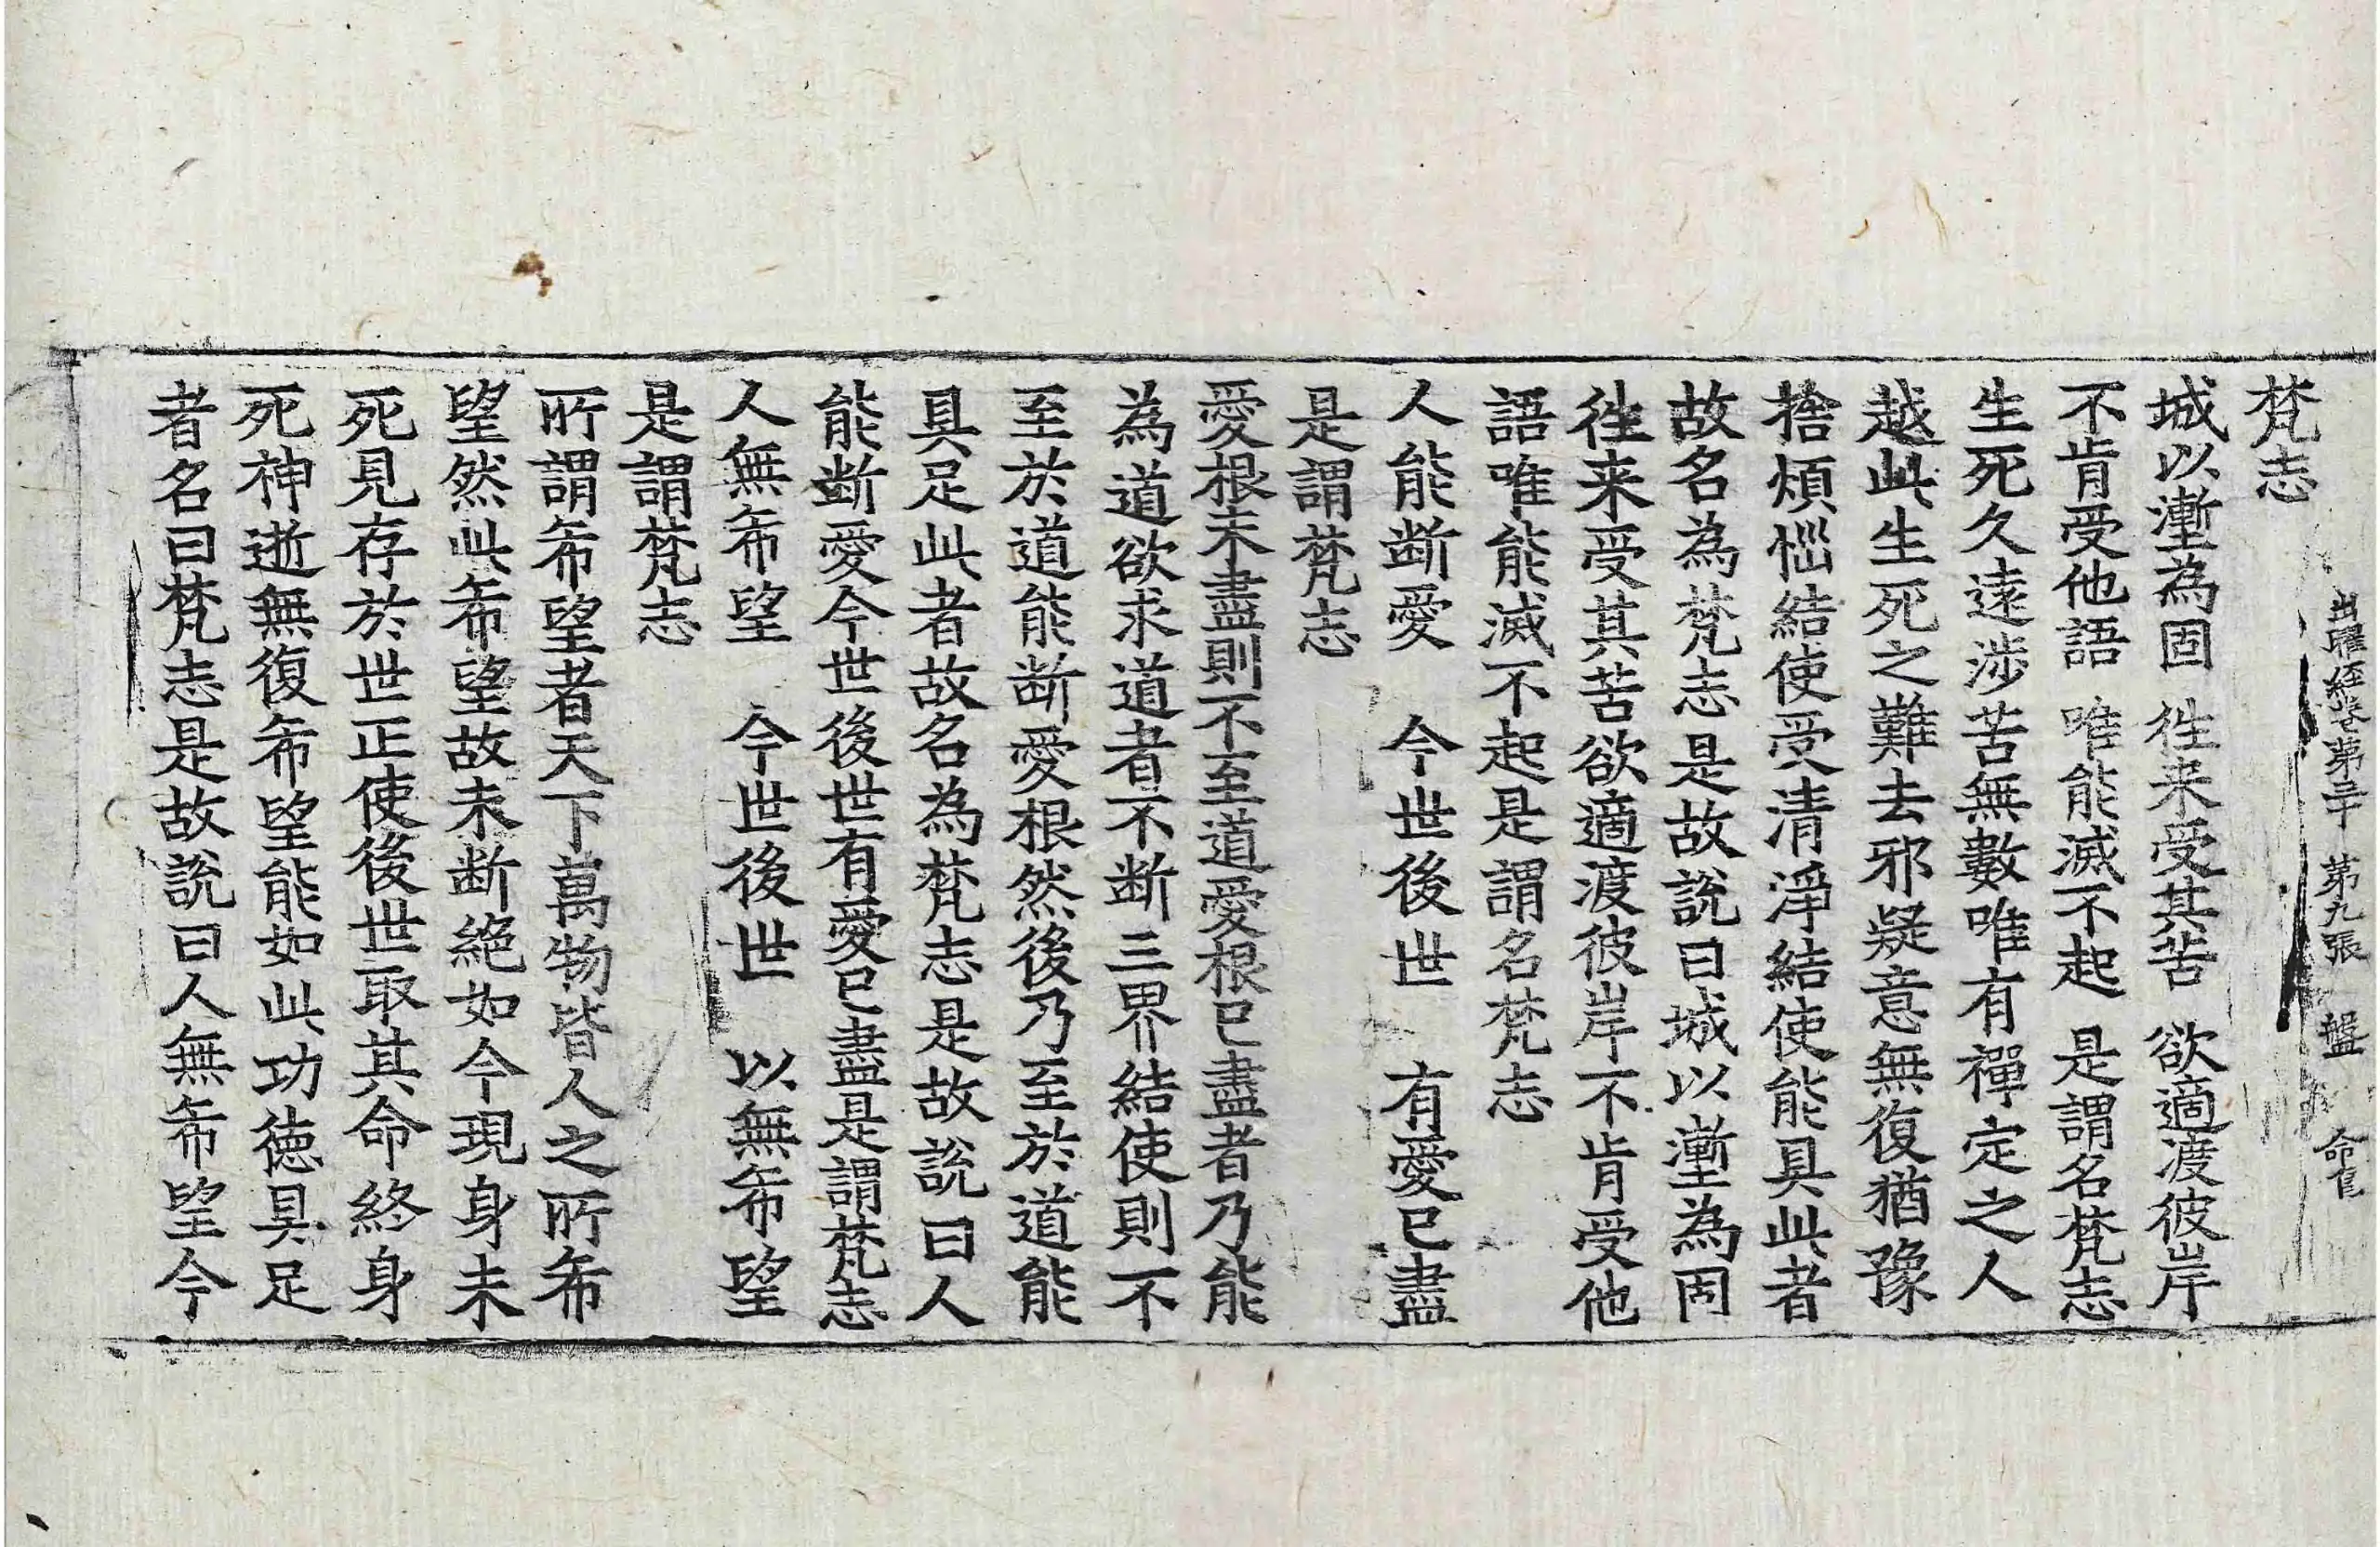 出曜經卷第三十 第九張 盤
梵志
城以漸為固 往来受其苦 欲適渡彼岸
不肯受他語 唯能滅不起 是謂名梵志
生死久遠涉苦無數唯有禪定之人
越此生死之難去邪疑意無復猶豫
捨煩惱結使受清淨結使能具此者
故名為梵志是故說曰城以漸為固
往来受其苦欲適渡彼岸不肯受他
語唯能滅不起是謂名梵志
人能断愛 今世後世 有愛已盡
是謂梵志
愛根未盡則不至道愛根已盡者乃能
為道欲求道者不断三界結使則不
至於道能断愛根然後乃至於道能
具足此者故名為梵志是故說曰人
能断愛今世後世有愛已盡是謂梵志
人無希望 今世後世 以無希望
是謂梵志
所謂希望者天下萬物皆人之所希
望然此希望故未断絕如今現身未
死見存於世正使後世取其命終身
死神逝無復希望能如此功德具足
者名曰梵志是故說曰人無希望今